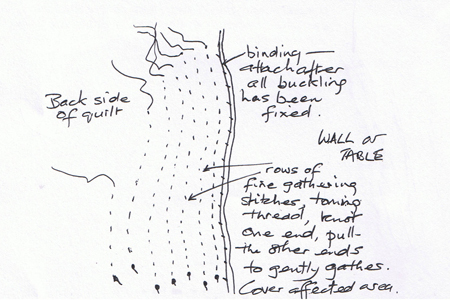 Back side
of quilt
binding —
attach after
all buckling
has been
fixed.
WALL OR
TABLE
rows of
fine gathering
stitches, toning
thread, knot
one end, pull
the other ends
to gently gather.
Cover affected area.